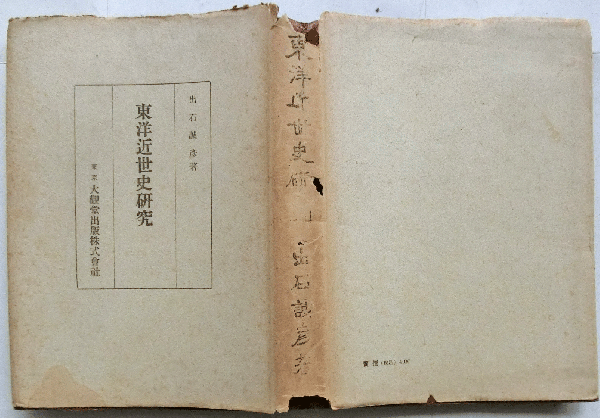 出石誠彦著
東洋近世史研究
東京 大觀堂出版株式會社
東洋近世史研
出石誠彦著
賣價